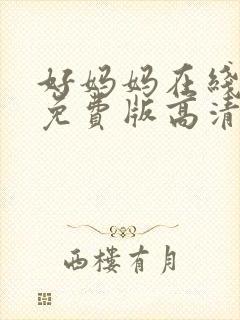 好妈妈在线
免费版高清
西楼有月